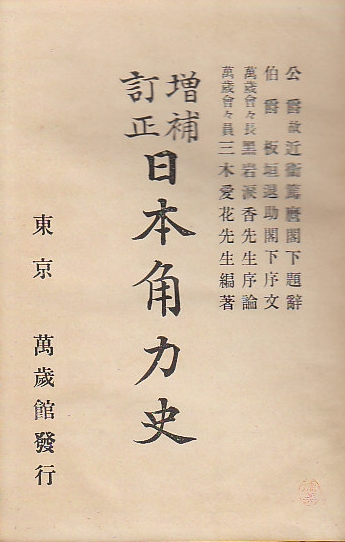 公爵故近衞篤麿閣下題辭
伯爵板垣退助閣下序文
萬歲會々長黑岩淚香先生序論
萬歲會々員三木愛花先生編著
增補
訂正
日本角力史
東京 萬歲館發行